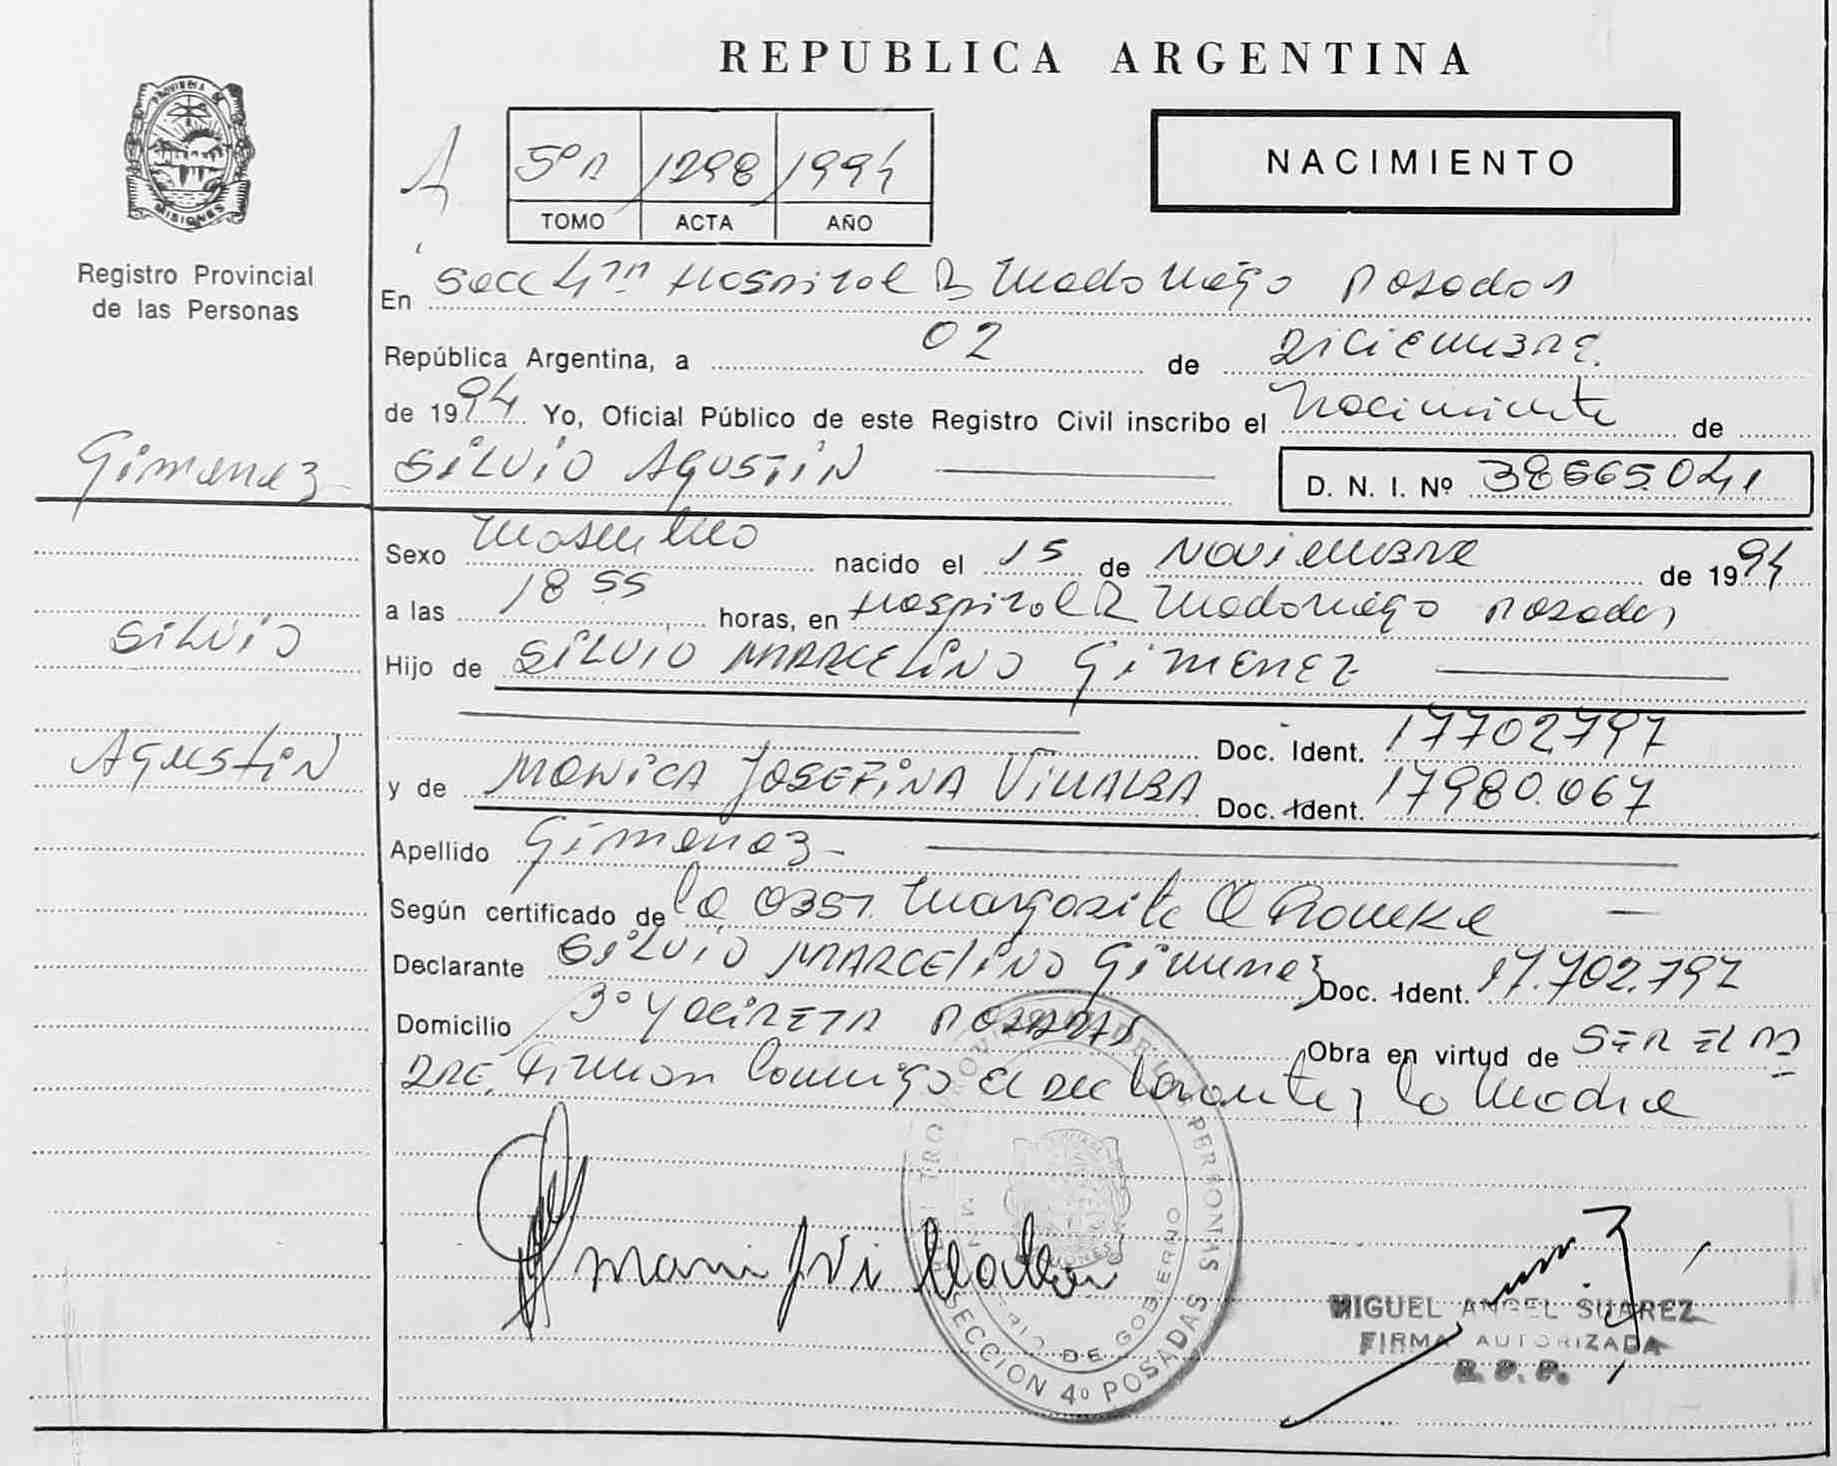 REPUBLICA ARGENTINA
PROVINCIA DE
MISIONES
Registro Provincial
de las Personas
5º A 1298 1994
TOMO ACTA AÑO
NACIMIENTO
En Secc 4ta Hospital R Madariaga Posadas
República Argentina, a 02 de Diciembre
de 1994 Yo, Oficial Público de este Registro Civil inscribo el Nacimiento de
Gimenez
SILVIO AGUSTIN
D. N. I. Nº 38665.041
Sexo Masculino nacido el 15 de Noviembre de 1994
a las 18 55 horas, en Hospital R Madariaga Posadas
SILVIO
Hijo de SILVIO MARCELINO GIMENEZ
Doc. Ident. 17702797
AGUSTIN
y de MONICA JOSEFINA VILLALBA Doc. Ident. 17980.067
Apellido Gimenez
Según certificado de la Obst. Margarita
Declarante SILVIO MARCELINO Gimenez Doc. Ident. 17.702.797
Domicilio Yacireta POSADAS Obra en virtud de SER EL PA
DRE. Firman Conmigo el Declarante y la Madre
SECCION 4º POSADAS
DE GOBIERNO
MIGUEL ANGEL SUAREZ
FIRMA AUTORIZADA
R. P. P.